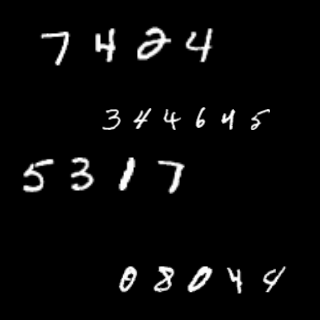 7424
344645
5317
08044